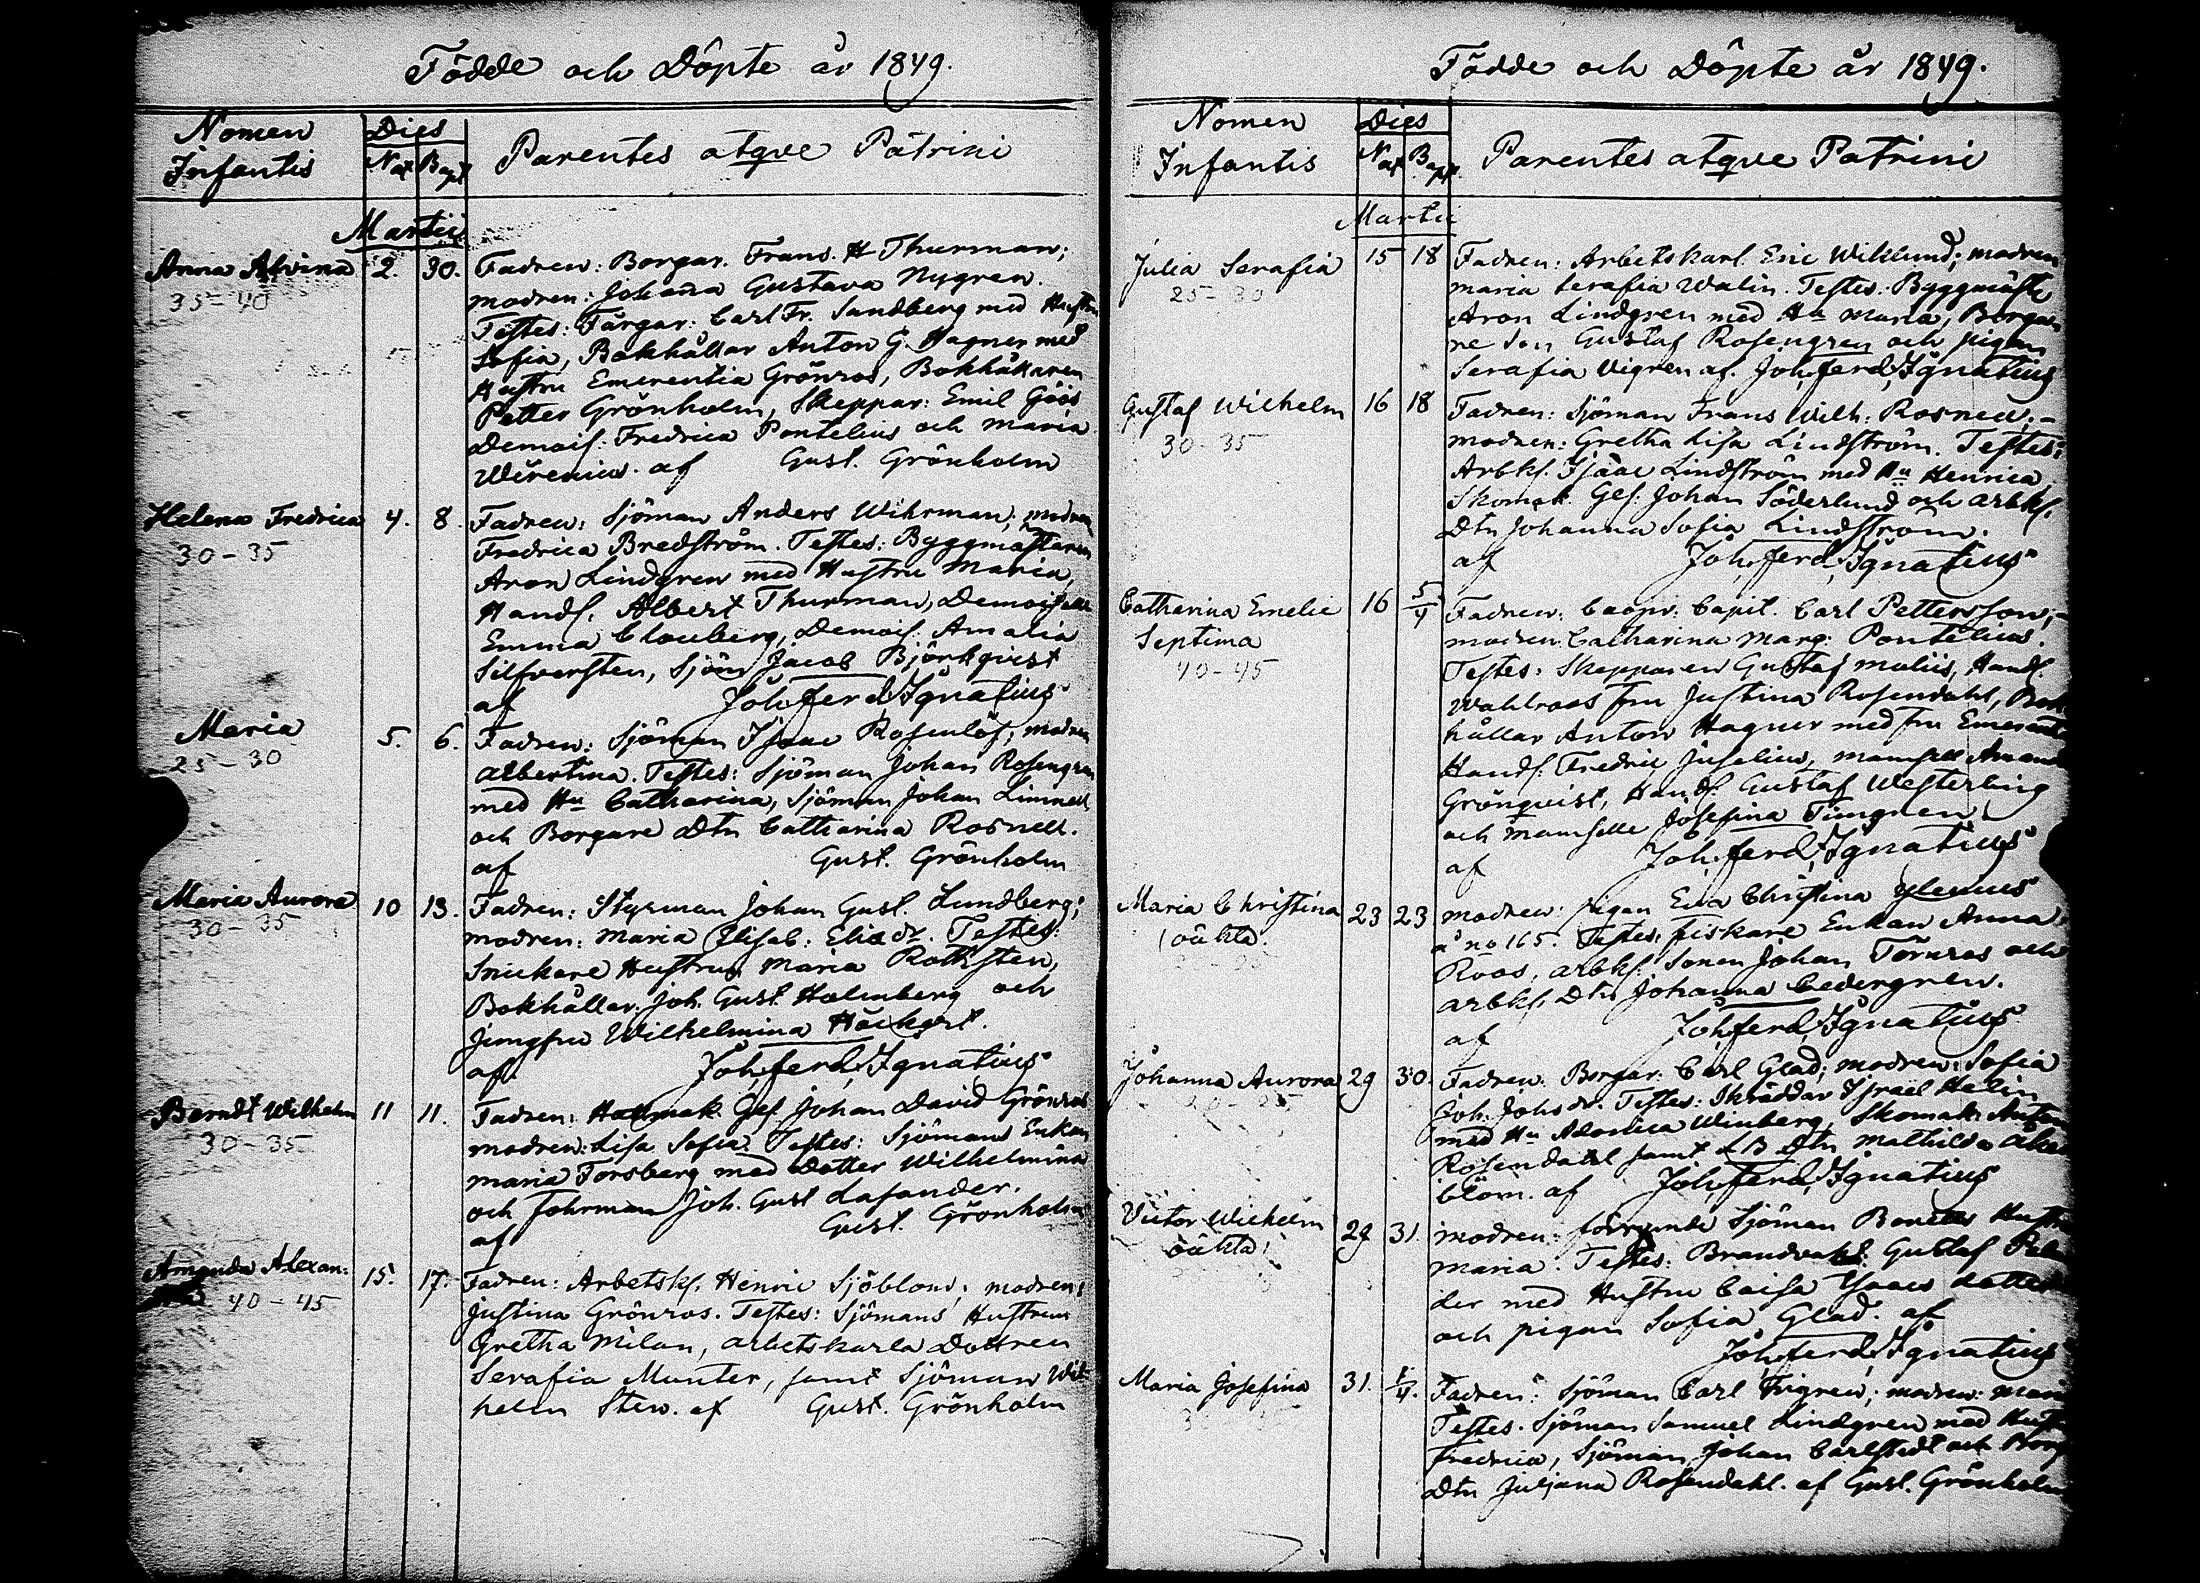 Födde och Döpte år 1849.
Nomen Infantis
Dies
Nat Bapt
Parentes atqve Patrini
Martii
Anna Alvina 2. 30. Fadren: Borgar. Frans. H Thurman;
35-40
modren: Johana Gustava Nygren.
Testes: Färgar: Carl Fr. Sandberg med Hustru
Sofia, Bokhållar Anton G. Hagner med
Hustru Emerentia Grönros, Bokhållaren
Petter Grönholm, Skeppar: Emil Göös
Demois: Fredrica Pontelius och Maria
af Gust. Grönholm
Helena Fredrica 4. 8. Fadren: Sjöman Anders Wihrman; modren
30-35
Fredrica Bredström. Testes: Byggmästaren
Aron Lindgren med Hustru Maria,
Handl. Albert Thurman, Demoiselle
Emma Clouberg, Demois. Amalia
Silfversten, Sjöm Jacob Björkqvist
af Joh. Ferd. Ignatius
Maria 5. 6. Fadren: Sjöman Isaac Rosenlöf; modren
25-30
Albertina. Testes: Sjöman Johan Rosengren
med Hu Catharina, Sjöman Johan Linnell
och Borgare Dtn Catharina Rosnell.
af Gust. Grönholm
Maria Aurora 10 13. Fadren: Styrman Johan Gust. Lundberg;
30-35
modren: Maria Elisab: Eliædr. Testes:
Snickare Hustrun Maria Rothsten,
Bokhållar. Joh. Gust. Holmberg och
Jungfru Wilhelmina Häckert.
af Joh. Ferd. Ignatius
Berndt Wilhelm 11 11. Fadren: Gef. Johan David Grönros
30-35
modren: Lisa Sofia. Testes: Sjömans Enkan
Maria Forsberg med Dotter Wilhelmina
och Fohrman Joh. Gust Lafander.
af Gust. Grönholm
Amanda Alexan: 15. 17. Fadren: Arbetskl. Henric Sjöblom; modren:
40-45
Justina Grönros. Testes: Sjömans Hustrun
Gretha Milan, arbetskarla Dottren
Serafia Munter, samt Sjöman Wil
helm Sten. af Gust. Grönholm
Födde och Döpte år 1849.
Nomen Infantis
Dies
Nat Bapt
Parentes atqve Patrini
Martii
Julia Serafia 15 18 Fadren: Arbetskarl. Eric Wiklund; modren
25-30
Maria Serafia Walin. Testes: Byggmäst
Aron Lindgren med Hu Maria, Borga
re Son Gustaf Rosengren och pigan
Serafia Vigren af Joh. Ferd. Ignatius
Gustaf Wilhelm 16 18 Fadren: Sjöman Frans Wilh: Rosnell;-
30-35
modren: Gretha Lisa Lindström. Testes:
Arbkl. Isaac Lindström med Hu Henrica,
Skomak. Gef. Johan Söderlund och arbkl.
Dtn Johanna Sofia Lindström.
af Joh. Ferd. Ignatius
Catharina Emelie 16 5/4 Fadren: Capit. Carl Pettersson;-
Septima
40-45
modren Catharina Marg: Pontelius.
Testes: Skepparen Gustaf Moliis, Handl.
Wahlroos fru Justina Rosendahl, Bok
hållar Anton Hagner med fru Emerent
Handl. Fredric Juselius, mamsell Amand
Grönqvist, Handl. Gustaf Westerling
och Mamselle Josefina Timgren.
af Joh. Ferd. Ignatius
Maria Christina 23 23 modren: pigan Eva Christina
(oäkta).
a no 165. Testes: fiskare Enkan Anna
Roos, arbkl. Sonen Johan Törnros och
arbkl. Dtn Johanna Cedergren.
af Joh. Ferd. Ignatius
Johanna Aurora 29 30. Fadren. Borgar. Carl Glad; modren: Sofia
Joh. Johsdr. Testes: Skräddar Israel Helin
med Hu Adolfica Winberg, Skomak: Anton
Rosendahl samt Dtn Mathilda
blom. af Joh. Ferd. Ignatius
Victor Wilhelm 29 31. modren: Sjöman Hustru
oäkta;
Maria. Testes: Brandvakt. Gustaf
der med Hustru Caisa Isaacs dotter
och pigan Sofia Glad. af
Joh. Ferd. Ignatius
Maria Josefina 31. 1/4. Fadren: Sjöman Carl Frigren; modren: Maria
Testes. Sjöman Samuel Lindgren med Hust
Fredrica, Sjöman Johan Carlstedt och Borg
Dtn Juljana Rosendahl. af Gust. Grönholm